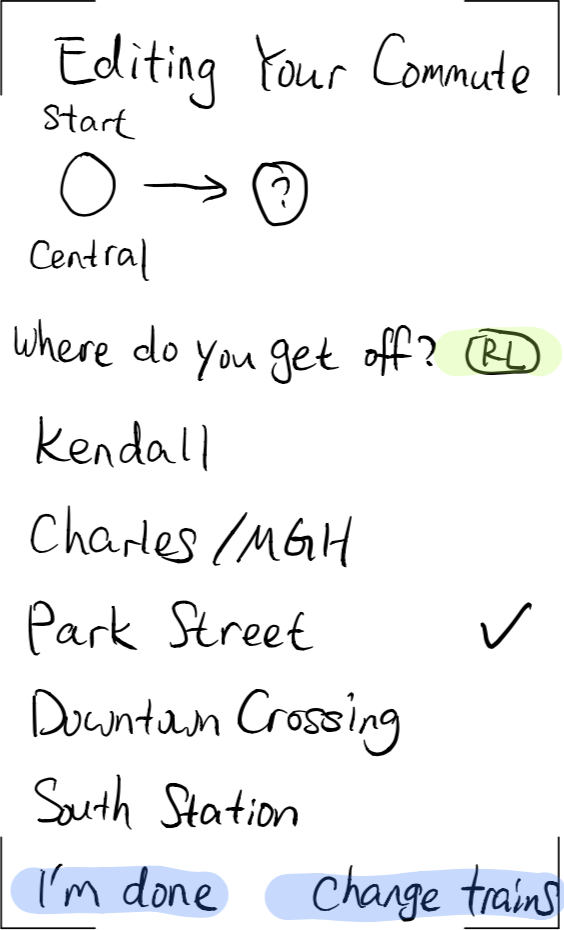 Editing Your Commute
Start
?
Central
Where do you get off? RL
Kendall
Charles/MGH
Park Street
Downtown Crossing
South Station
I'm done Change trains